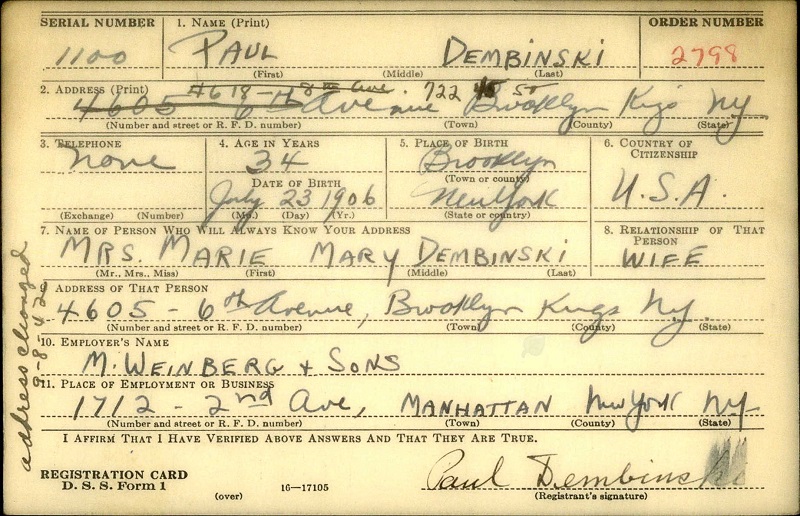 SERIAL NUMBER 1. NAME (Print) ORDER NUMBER
1100 PAUL DEMBINSKI 2798
(First) (Middle) (Last)
2. ADDRESS (Print) #618 - 8th Ave. 722 45 ST
4605 6th Avenue Brooklyn Kings NY
(Number and street or R. F. D. number) (Town) (County) (State)
3. TELEPHONE 4. AGE IN YEARS 5. PLACE OF BIRTH 6. COUNTRY OF CITIZENSHIP
none 34 Brooklyn U.S.A.
(Town or county)
DATE OF BIRTH
July 23 1906 New York
(Exchange) (Number) (Mo.) (Day) (Yr.) (State or country)
7. NAME OF PERSON WHO WILL ALWAYS KNOW YOUR ADDRESS 8. RELATIONSHIP OF THAT PERSON
MRS. MARIE MARY DEMBINSKI WIFE
(Mr., Mrs., Miss) (First) (Middle) (Last)
9. ADDRESS OF THAT PERSON
4605 - 6th Avenue, Brooklyn Kings N.Y.
(Number and street or R. F. D. number) (Town) (County) (State)
10. EMPLOYER'S NAME
M. WEINBERG + SONS
11. PLACE OF EMPLOYMENT OR BUSINESS
1712 - 2nd Ave, MANHATTAN New York NY.
(Number and street or R. F. D. number) (Town) (County) (State)
I AFFIRM THAT I HAVE VERIFIED ABOVE ANSWERS AND THAT THEY ARE TRUE.
REGISTRATION CARD
D. S. S. Form 1 (over) 16—17105 Paul Dembinski
(Registrant's signature)
address changed
9-8-42